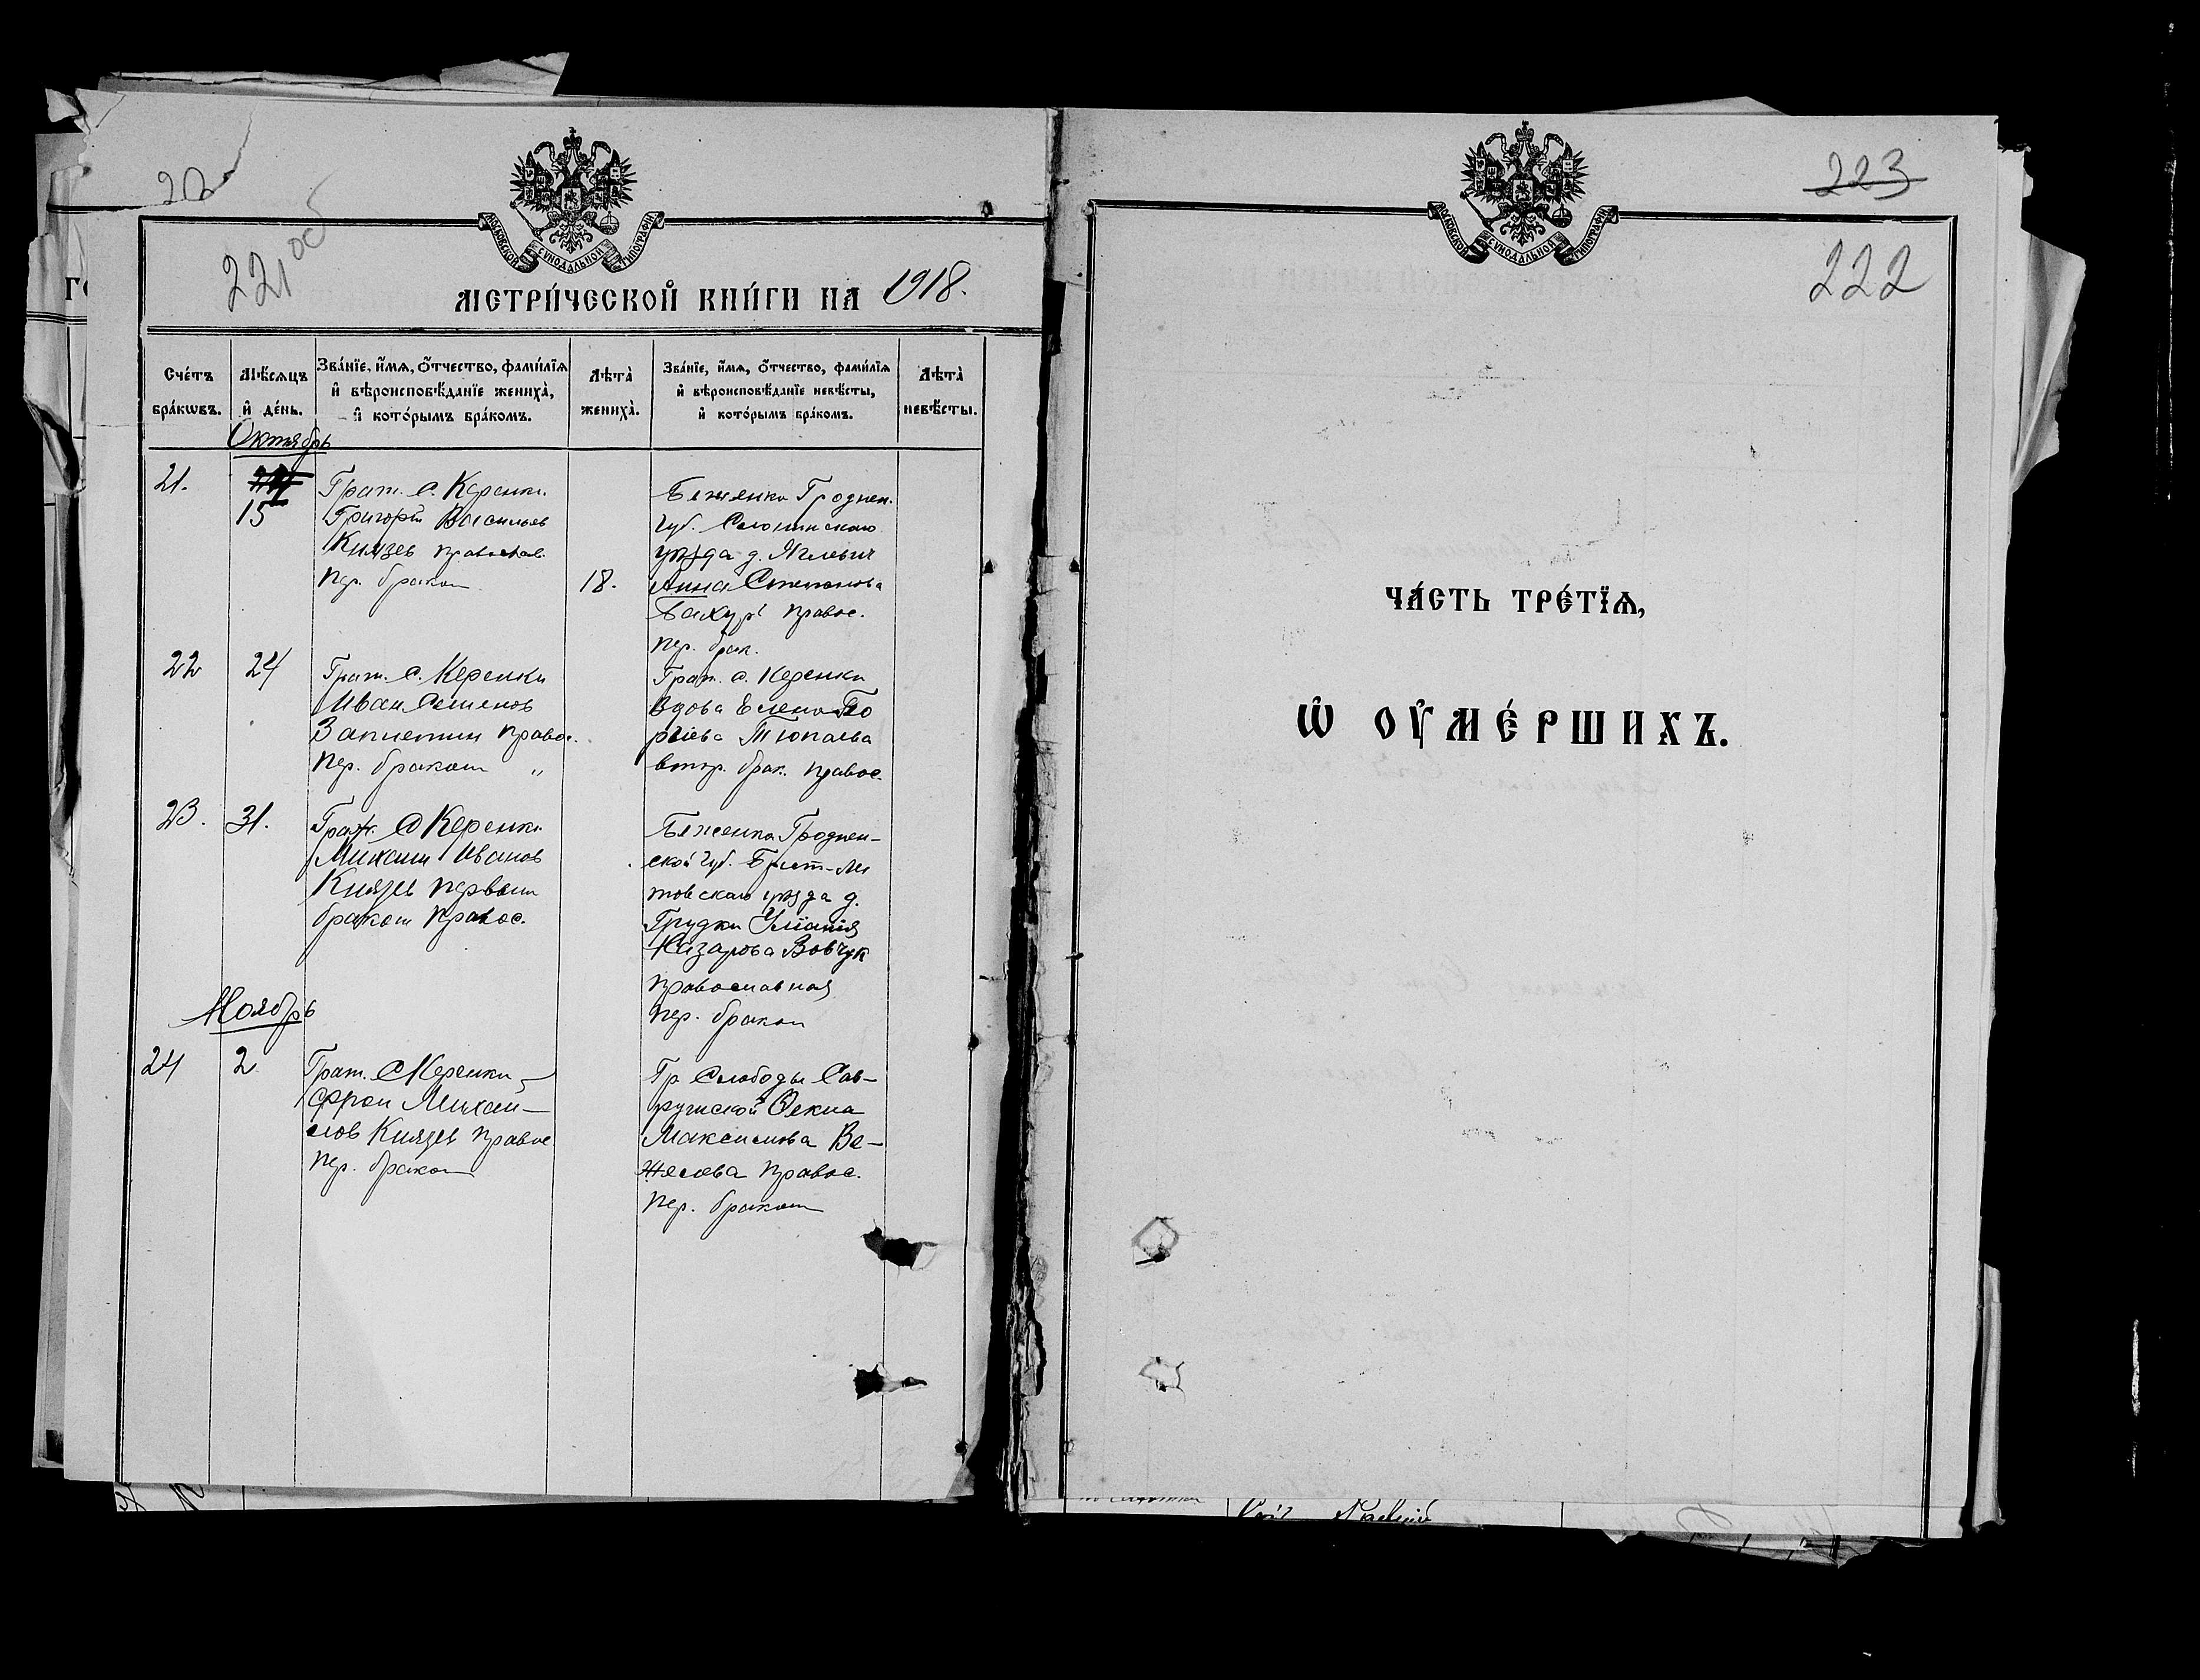 221 об
МОСКОВСКОЙ СѴНОДАЛЬНОЙ ТИПОГРАФІИ
МЕТРИ́ЧЕСКОЙ КНИ́ГИ НА 1918.
Сче́тъ бра́кѡвъ.
Мѣ́сяцъ и҆ де́нь.
Зва́нїе, и҆́мя, ѻ҆́тчество, фами́лїя
и҆ вѣроисповѣ́данїе жениха̀,
и҆ кото́рымъ бра́комъ.
Лѣта̀ жениха̀.
Зва́нїе, и҆́мя, ѻ҆́тчество, фами́лїя
и҆ вѣроисповѣ́данїе невѣ́сты,
и҆ кото́рымъ бра́комъ.
Лѣта̀ невѣ́сты.
Октябрь
21.
15
Граж. с. Керенки
Григорій Васильев
Князев православ.
пер. браком
18.
Беженка Гроднен.
губ. Слонимскаго
уезда д.
Анна Степанова
Бахуръ правос.
пер. брак.
22
24
Граж. с. Керенки
Иван Семенов
Заплетин правос.
пер. браком "
Граж. с. Керенки
вдова Елена
Тюпаева
втор. брак. правос.
23.
31.
Граж. с Керенки
Михаил Иванов
Князев первым
браком правос.
Беженка Гроднен-
ской губ. Брест-Ли
товскаго уезда д.
Грудки
Назарова Вовчук
православная
пер. браком
Ноябрь
24
2
Граж. с Керенки
Михай-
лов Князев правос
пер. браком
Гр Слободы
Фекла
Максимова Ве-
жслева правос.
пер. браком
223
222
МОСКОВСКОЙ СѴНОДАЛЬНОЙ ТИПОГРАФІИ
ЧА́СТЬ ТРЕ́ТЇѦ,
Ѡ҆ ОУ҆МЕ́РШИХЪ.